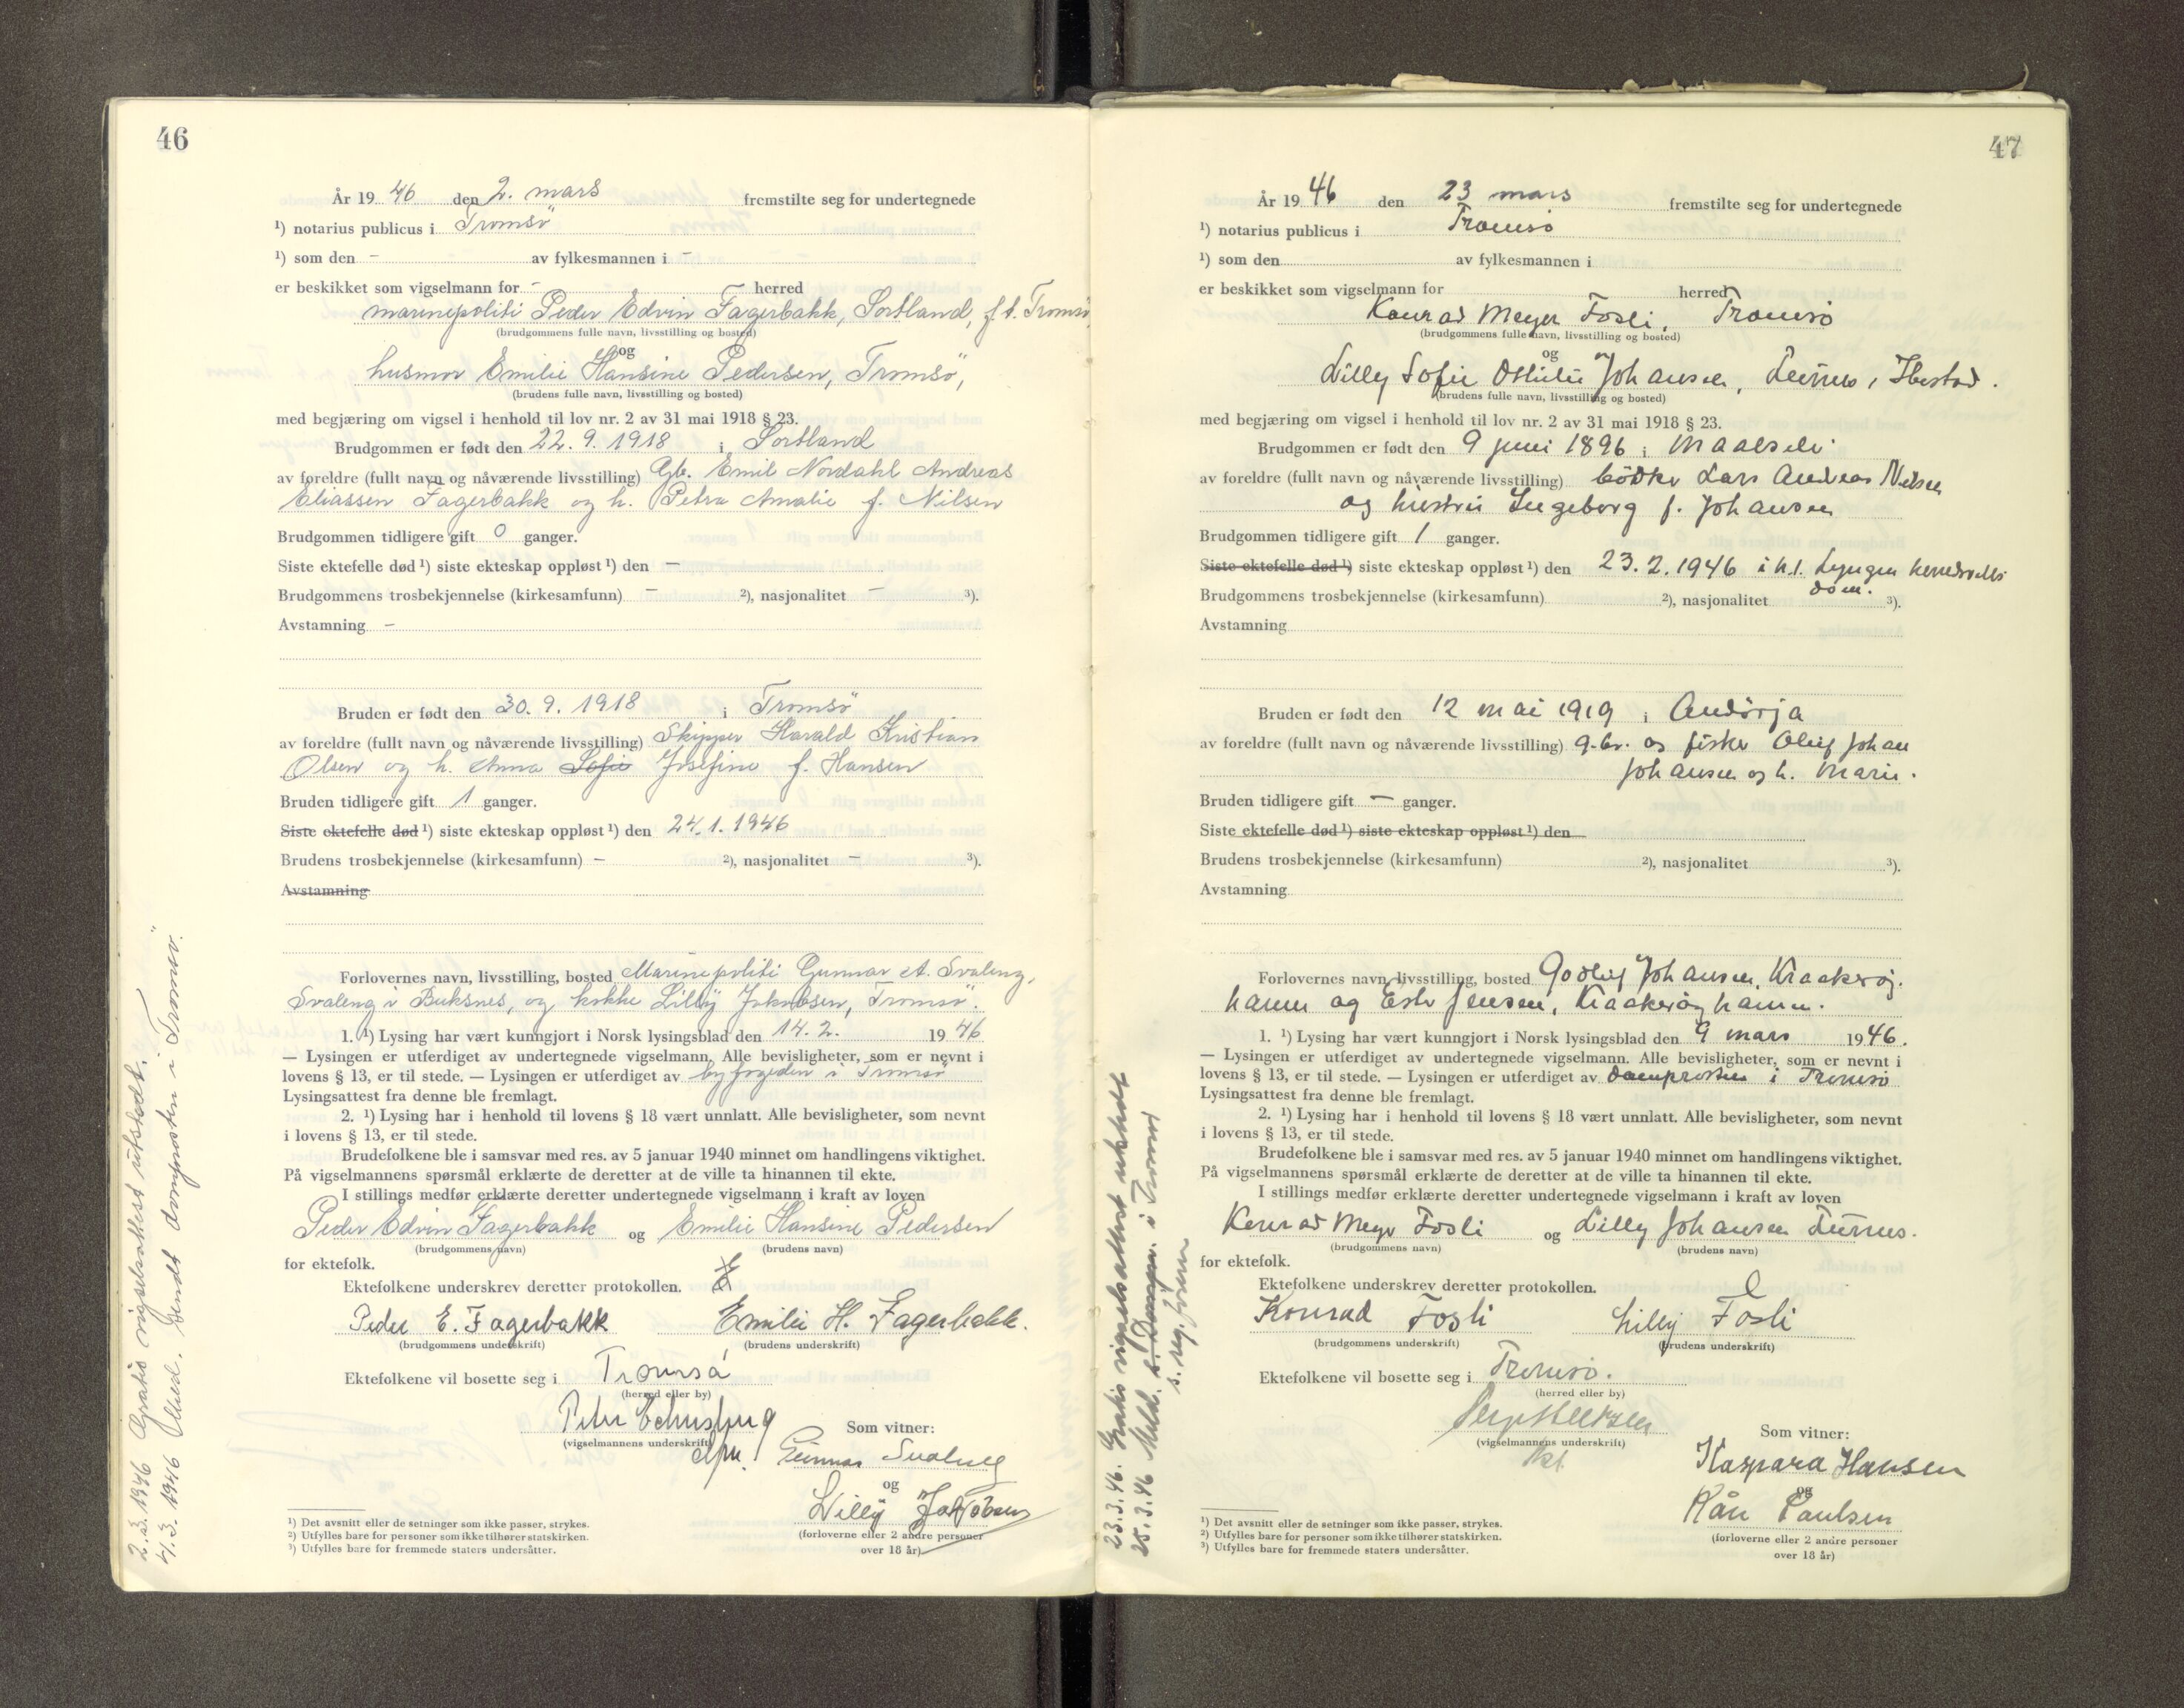 46
År 19 46 den 2. mars fremstilte seg for undertegnede
¹) notarius publicus i Tromsö
¹) som den - av fylkesmannen i -
er beskikket som vigselmann for - herred
marinepoliti Peder Edvin Fagerbakk, Sortland, f.t. Tromsö
(brudgommens fulle navn, livsstilling og bosted)
og
husmor Emilie Hansine Pedersen, Tromsö,
(brudens fulle navn, livsstilling og bosted)
med begjæring om vigsel i henhold til lov nr. 2 av 31 mai 1918 § 23.
Brudgommen er født den 22. 9. 1918 i Sortland
av foreldre (fullt navn og nåværende livsstilling) Gb. Emil Nordahl Andreas
Eliassen Fagerbakk og h. Petra Amalie f. Nilsen
Brudgommen tidligere gift 0 ganger.
Siste ektefelle død ¹) siste ekteskap oppløst ¹) den —
Brudgommens trosbekjennelse (kirkesamfunn) — ²), nasjonalitet — ³).
Avstamning -
Bruden er født den 30. 9. 1918 i Tromsö
av foreldre (fullt navn og nåværende livsstilling) Skipper Harald Kristian
Olsen og h. Anna Sofie Josefine f. Hansen
Bruden tidligere gift 1 ganger.
Siste ektefelle død ¹) siste ekteskap oppløst ¹) den 24. 1. 1946
Brudens trosbekjennelse (kirkesamfunn) - ²), nasjonalitet — ³).
Avstamning
Forlovernes navn, livsstilling, bosted Marinepoliti Gunnar A. Svaleng,
Svaleng i Buksnes, og kokke Lilly Jakobsen, Tromsö.
1. ¹) Lysing har vært kunngjort i Norsk lysingsblad den 14. 2. 19 46
— Lysingen er utferdiget av undertegnede vigselmann. Alle bevisligheter, som er nevnt i
lovens § 13, er til stede. — Lysingen er utferdiget av byfogeden i Tromsö
Lysingsattest fra denne ble fremlagt.
2. ¹) Lysing har i henhold til lovens § 18 vært unnlatt. Alle bevisligheter, som nevnt
i lovens § 13, er til stede.
Brudefolkene ble i samsvar med res. av 5 januar 1940 minnet om handlingens viktighet.
På vigselmannens spørsmål erklærte de deretter at de ville ta hinannen til ekte.
I stillings medfør erklærte deretter undertegnede vigselmann i kraft av loven
Peder Edvin Fagerbakk og Emilie Hansine Pedersen
(brudgommens navn) (brudens navn)
for ektefolk.
Ektefolkene underskrev deretter protokollen.
Peder E. Fagerbakk Emilie H. Fagerbakk.
(brudgommens underskrift) (brudens underskrift)
Ektefolkene vil bosette seg i Tromsö
(herred eller by)
Som vitner:
(vigselmannens underskrift)
Gunnar Svaleng
og
Lilly Jakobsen
(forloverne eller 2 andre personer
over 18 år)
¹) Det avsnitt eller de setninger som ikke passer, strykes.
²) Utfylles bare for personer som ikke tilhører statskirken.
³) Utfylles bare for fremmede staters undersåtter.
2. 3. 1946 Gratis vigselsattest utstedt.
4. 3. 1946 Medd. sendt domprosten i Tromsö.
47
År 19 46 den 23 mars fremstilte seg for undertegnede
¹) notarius publicus i Tromsö
¹) som den av fylkesmannen i
er beskikket som vigselmann for herred
Konrad Meyer Fosli, Tromsö
(brudgommens fulle navn, livsstilling og bosted)
og
Lilly Sofie Ottilie Johansen, Ibestad.
(brudens fulle navn, livsstilling og bosted)
med begjæring om vigsel i henhold til lov nr. 2 av 31 mai 1918 § 23.
Brudgommen er født den 9 juni 1896 i Maalselv
av foreldre (fullt navn og nåværende livsstilling) bödker Lars Andreas Nilsen
og hustru Ingeborg f. Johansen
Brudgommen tidligere gift 1 ganger.
Siste ektefelle død ¹) siste ekteskap oppløst ¹) den 23. 2. 1946 i h.t. Lyngen herredsretts
dom.
Brudgommens trosbekjennelse (kirkesamfunn) ²), nasjonalitet ³).
Avstamning
Bruden er født den 12 mai 1919 i Andörja
av foreldre (fullt navn og nåværende livsstilling) g.br. og fisker Oluf Johan
Johansen og h. Marie.
Bruden tidligere gift — ganger.
Siste ektefelle død ¹) siste ekteskap oppløst ¹) den
Brudens trosbekjennelse (kirkesamfunn) ²), nasjonalitet ³).
Avstamning
Forlovernes navn, livsstilling, bosted Johansen, Kraakeröy
hamn og Jensen, Kraakeröyhamn.
1. ¹) Lysing har vært kunngjort i Norsk lysingsblad den 9 mars 1946.
— Lysingen er utferdiget av undertegnede vigselmann. Alle bevisligheter, som er nevnt i
lovens § 13, er til stede. — Lysingen er utferdiget av domprosten i Tromsö
Lysingsattest fra denne ble fremlagt.
2. ¹) Lysing har i henhold til lovens § 18 vært unnlatt. Alle bevisligheter, som nevnt
i lovens § 13, er til stede.
Brudefolkene ble i samsvar med res. av 5 januar 1940 minnet om handlingens viktighet.
På vigselmannens spørsmål erklærte de deretter at de ville ta hinannen til ekte.
I stillings medfør erklærte deretter undertegnede vigselmann i kraft av loven
Konrad Meyer Fosli og Lilly Johansen
(brudgommens navn) (brudens navn)
for ektefolk.
Ektefolkene underskrev deretter protokollen.
Konrad Fosli Lilly Fosli
(brudgommens underskrift) (brudens underskrift)
Ektefolkene vil bosette seg i Tromsö.
(herred eller by)
(vigselmannens underskrift)
Som vitner:
Kaspara Hansen
og
Kåre Paulsen
(forloverne eller 2 andre personer
over 18 år)
¹) Det avsnitt eller de setninger som ikke passer, strykes.
²) Utfylles bare for personer som ikke tilhører statskirken.
³) Utfylles bare for fremmede staters undersåtter.
23.3.46. Gratis vigselsattest utstedt
25.3.46 Meld. s. Dompr. i Tromsö